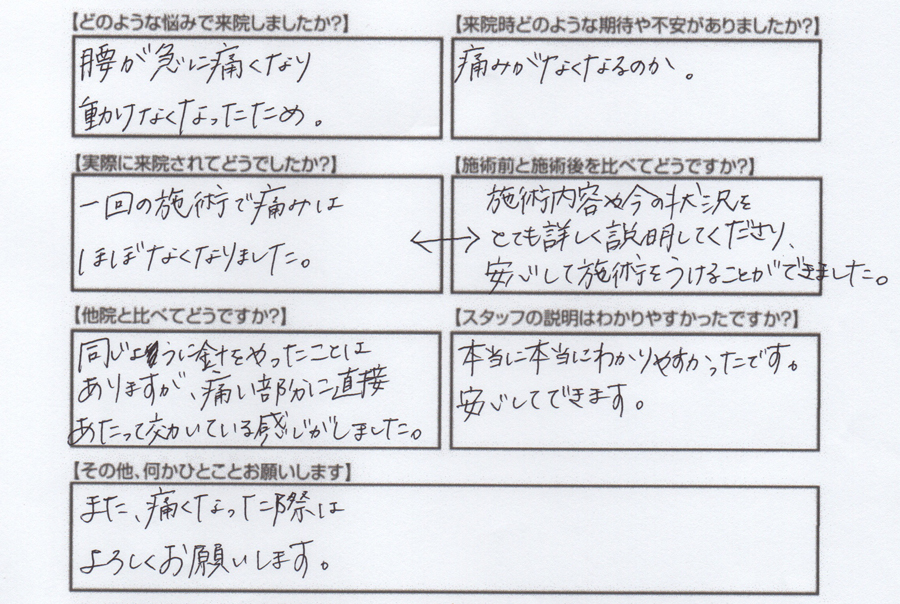 【どのような悩みで来院しましたか?】
腰が急に痛くなり
動けなくなったため。
【来院時どのような期待や不安がありましたか?】
痛みがなくなるのか。
【実際に来院されてどうでしたか?】
一回の施術で痛みは
ほぼなくなりました。
【施術前と施術後を比べてどうですか?】
施術内容や今の状況を
とても詳しく説明してくださり、
安心して施術をうけることができました。
【他院と比べてどうですか?】
同じように針をやったことは
ありますが、痛い部分に直接
あたって効いている感じがしました。
【スタッフの説明はわかりやすかったですか?】
本当に本当にわかりやすかったです。
安心してできます。
【その他、何かひとことお願いします】
また、痛くなった際は
よろしくお願いします。